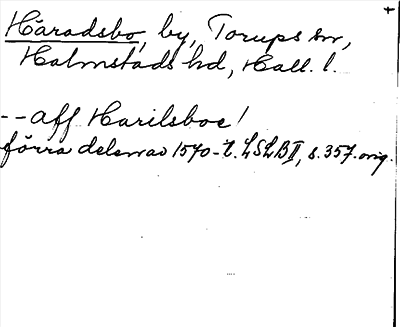 Häradsbo, by, Torups sn,
Halmstads hd, Hall. l.
-- aff Harilsboe!
förra delen av 1570-t. LSLB II, s. 357. orig.